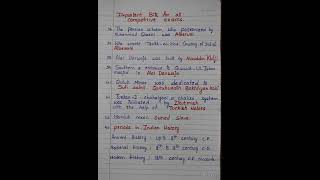 Important Bits for all
competitive exams.
The persian scholar, who patronized by
Muhammad Ghazni was Alberuni
Who wrote Tarikh-ul-Hind (History of India)
Alberuni
Alai Darwaja was built by Alauddin Khilji
Southern entrance to Quwwat-Ul-Islam
masjid is Alai Darwaja
Qutub Minar was dedicated to
Sufi saint Qutubuddin Bakhtiyar Kaki
Turkan-I-chahalgani or chalisa system
was initiated by Iltutmish
with the help of Turkish Nobles
Mamluk mean Owned Slave
periods in Indian History
Ancient History : up to 8th century C.E.
Medieval History : 8th to 18th century C.E.
Modern History : 18th century C.E onwards